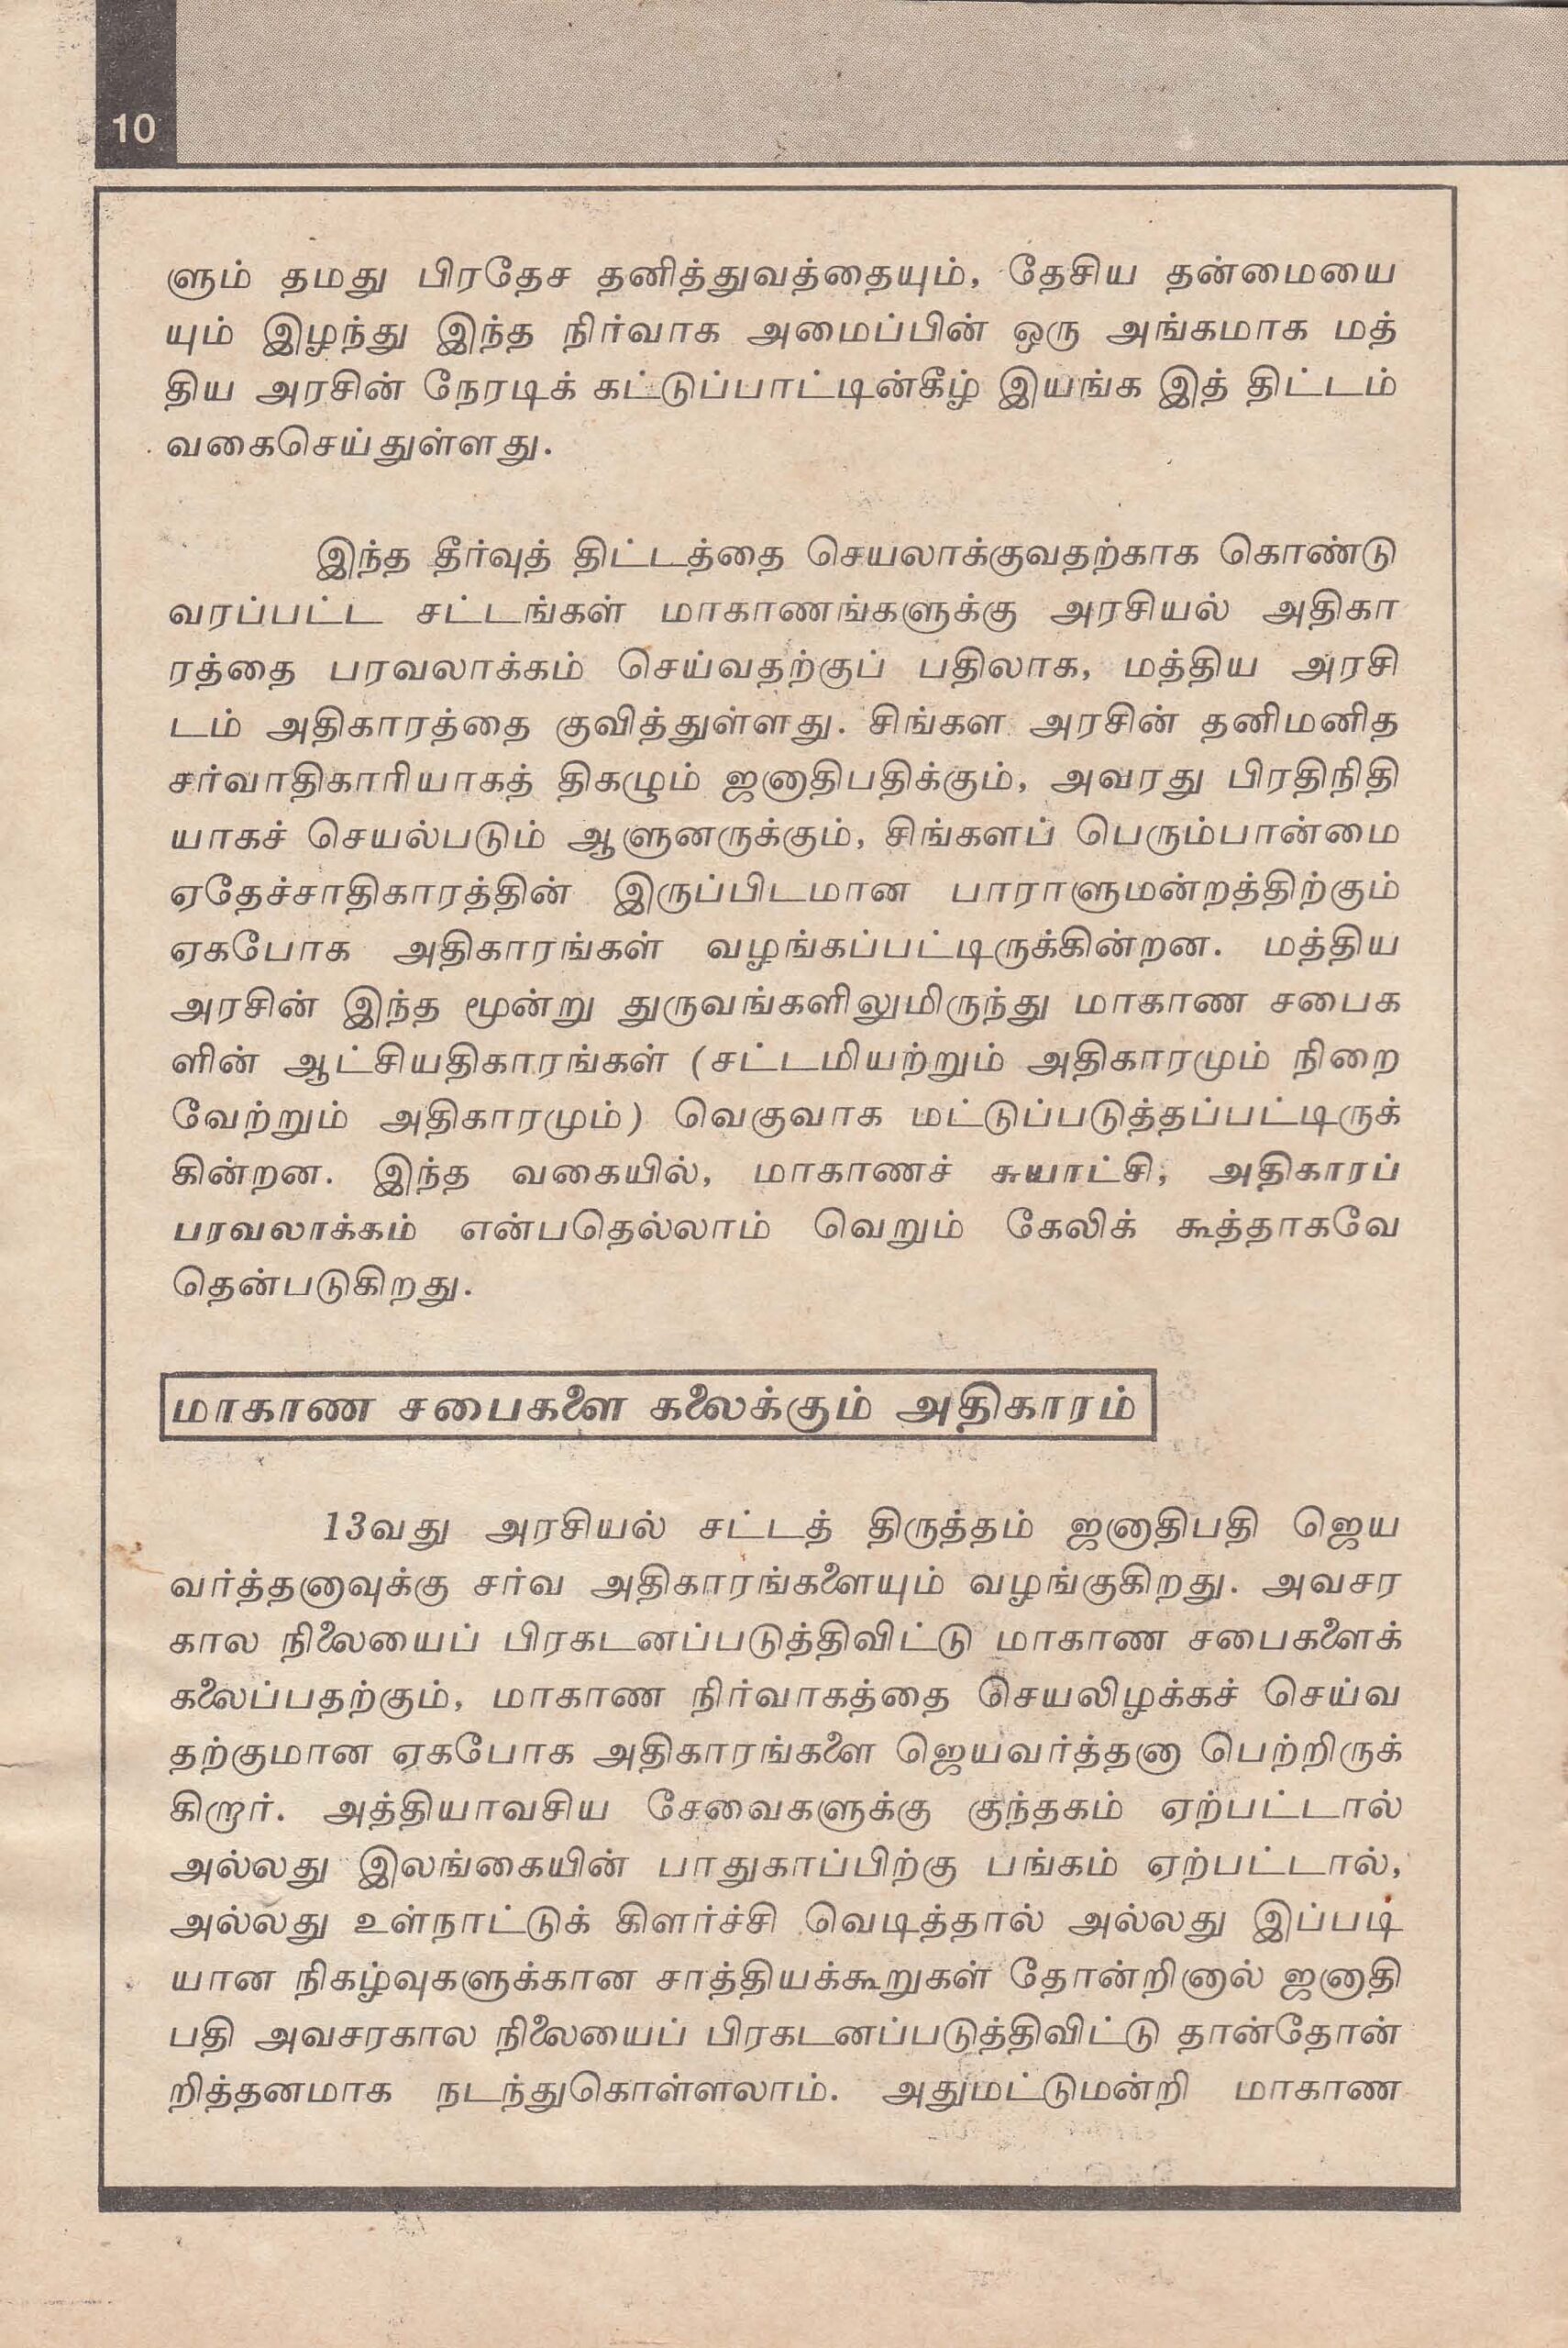 10
ளும் தமது பிரதேச தனித்துவத்தையும், தேசிய தன்மையை
யும் இழந்து இந்த நிர்வாக அமைப்பின் ஒரு அங்கமாக மத்
திய அரசின் நேரடிக் கட்டுப்பாட்டின்கீழ் இயங்க இத் திட்டம்
வகைசெய்துள்ளது.
இந்த தீர்வுத் திட்டத்தை செயலாக்குவதற்காக கொண்டு
வரப்பட்ட சட்டங்கள் மாகாணங்களுக்கு அரசியல் அதிகா
ரத்தை பரவலாக்கம் செய்வதற்குப் பதிலாக, மத்திய அரசி
டம் அதிகாரத்தை குவித்துள்ளது. சிங்கள அரசின் தனிமனித
சர்வாதிகாரியாகத் திகழும் ஜனாதிபதிக்கும், அவரது பிரதிநிதி
யாகச் செயல்படும் ஆளுனருக்கும், சிங்களப் பெரும்பான்மை
ஏதேச்சாதிகாரத்தின் இருப்பிடமான பாராளுமன்றத்திற்கும்
ஏகபோக அதிகாரங்கள் வழங்கப்பட்டிருக்கின்றன. மத்திய
அரசின் இந்த மூன்று துருவங்களிலுமிருந்து மாகாண சபைக
ளின் ஆட்சியதிகாரங்கள் (சட்டமியற்றும் அதிகாரமும் நிறை
வேற்றும் அதிகாரமும்) வெகுவாக மட்டுப்படுத்தப்பட்டிருக்
கின்றன. இந்த வகையில், மாகாணச் சுயாட்சி, அதிகாரப்
பரவலாக்கம் என்பதெல்லாம் வெறும் கேலிக் கூத்தாகவே
தென்படுகிறது.
மாகாண சபைகளை கலைக்கும் அதிகாரம்
13வது அரசியல் சட்டத் திருத்தம் ஜனாதிபதி ஜெய
வர்த்தனாவுக்கு சர்வ அதிகாரங்களையும் வழங்குகிறது. அவசர
கால நிலையைப் பிரகடனப்படுத்திவிட்டு மாகாண சபைகளைக்
கலைப்பதற்கும், மாகாண நிர்வாகத்தை செயலிழக்கச் செய்வ
தற்குமான ஏகபோக அதிகாரங்களை ஜெயவர்த்தனா பெற்றிருக்
கிறார். அத்தியாவசிய சேவைகளுக்கு குந்தகம் ஏற்பட்டால்
அல்லது இலங்கையின் பாதுகாப்பிற்கு பங்கம் ஏற்பட்டால்,
அல்லது உள்நாட்டுக் கிளர்ச்சி வெடித்தால் அல்லது இப்படி
யான நிகழ்வுகளுக்கான சாத்தியக்கூறுகள் தோன்றினால் ஜனாதி
பதி அவசரகால நிலையைப் பிரகடனப்படுத்திவிட்டு தான்தோன்
றித்தனமாக நடந்துகொள்ளலாம். அதுமட்டுமன்றி மாகாண